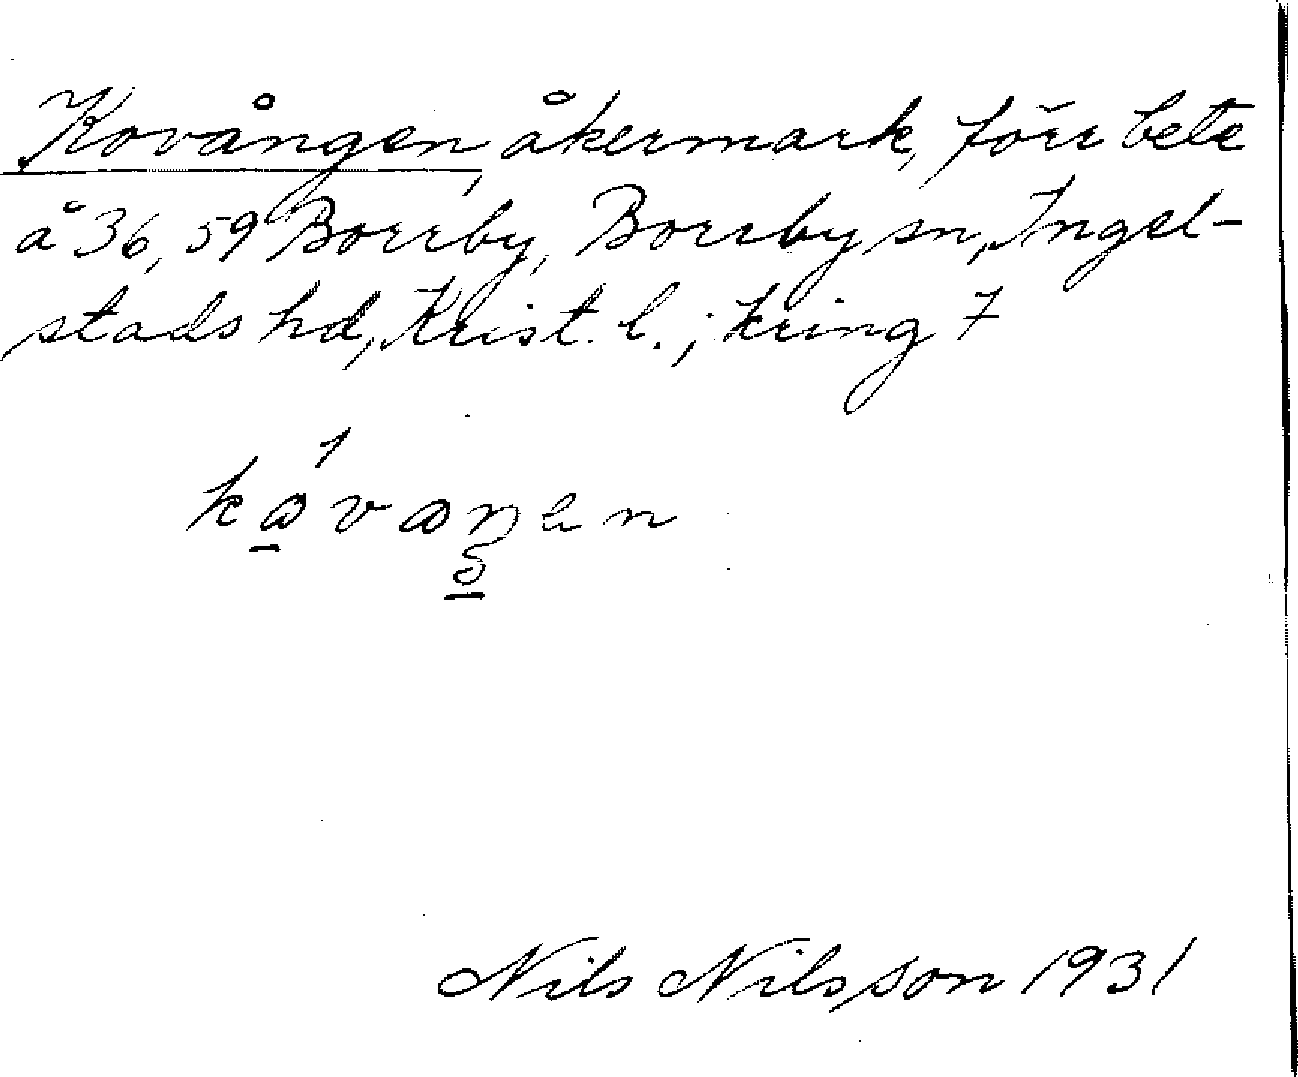 Kovången, åkermark, förr bete
å 36, 59 Borrby, Borrby sn, Ingel-
stads hd, Krist. l.; kring 7
Nils Nilsson 1931